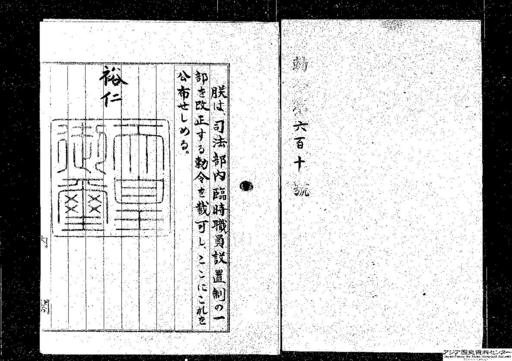 勅令第六百十號
朕は、司法部內臨時職員設置制の一
部を改正する勅令を裁可し、ここにこれを
公布せしめる。
裕仁
天皇
御璽
アジア歴史資料センター